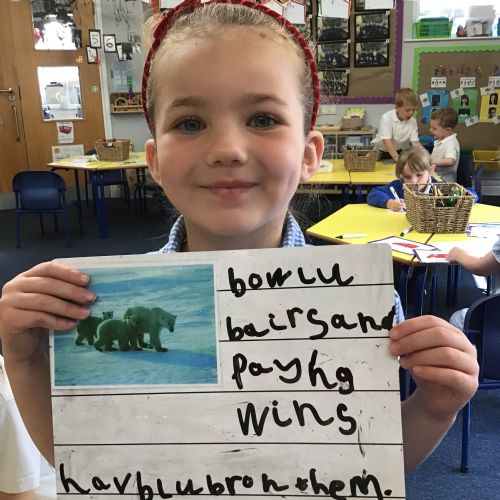 bowlu
bairsand
payhg
wins
havblubronthem.